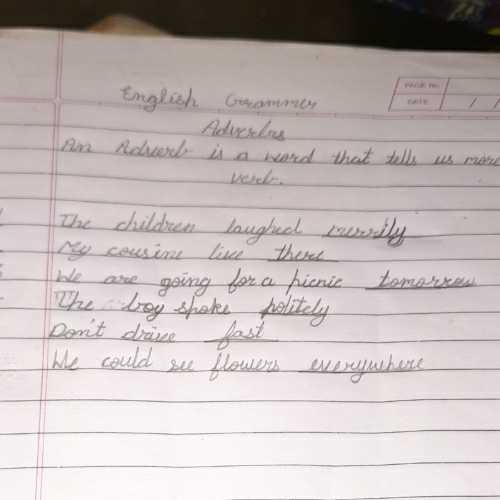 PAGE NO.
DATE / /
English Grammer
Adverbs
An Adverb is a word that tells us more
verb.
The children laughed merrily
My cousins live there
We are going for a picnic tomorrow
The boy spoke politely
Don't drive fast
We could see flowers everywhere